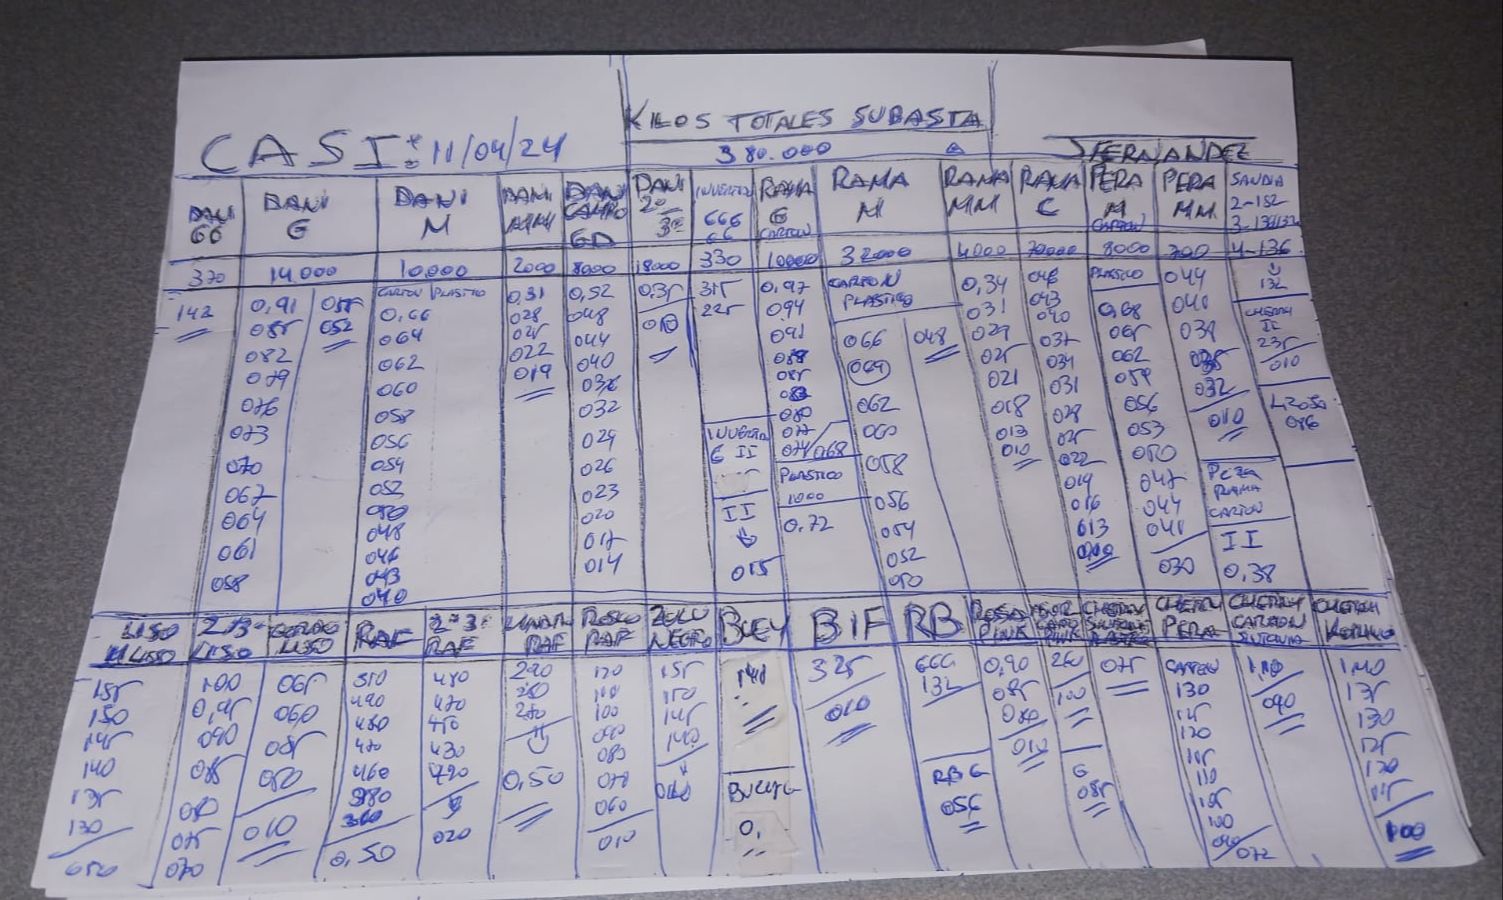 KILOS TOTALES SUBASTA
CASI: 11/04/24
380.000
JFERNANDEZ
DANI GG
DANI G
DANI M
DANI MM
DANI CALIBRE GD
DANI 2ª 3ª
RAMA G CARTON
RAMA M
RAMA MM
RAMA C
PERA M CARTON
PERA MM
SANDIA
2-152
4-136
370
14.000
10.000
2000
8000
18000
330
10000
32000
4000
8000
142
0,91 055
085 052
082
079
076
073
070
067
064
061
058
CARTON PLASTICO
0,66
064
062
060
058
056
054
052
050
048
046
043
040
0,31
028
025
022
019
0,52
048
044
040
032
029
026
023
020
017
014
0,35
010
315
225
II
015
0,97
094
091
088
085
080
077
074/068
PLASTICO
1000
0,72
CARTON
PLASTICO
066 048
064
062
060
058
056
054
052
050
0,34
031
029
025
021
018
013
010
046
043
040
037
034
031
028
025
022
019
016
013
PLASTICO
0,68
065
062
059
056
053
050
047
044
041
030
044
041
038
035
032
010
PERA
RAMA
CARTON
II
0,38
132
CHERRY
II
235
010
086
LISO
2ª3ª LISO
RAF
2ª 3ª RAF
ZOCO NEGRO
BUEY
BIF
RB
ROSA PINK
CHERRY PERA
CHERRY CARTON
CHERRY KOMMO
155
150
145
140
135
130
050
100
0,95
090
085
080
075
070
065
060
055
050
010
510
490
480
470
460
380
360
0,50
480
470
450
430
420
020
290
280
270
0,50
120
110
100
090
080
070
060
010
155
150
145
140
010
140
0,
325
010
666
132
RB G
056
0,90
085
080
010
260
100
G
085
075
CARTON
130
125
120
115
110
105
100
072
1,10
090
1,40
135
130
125
120
115
100